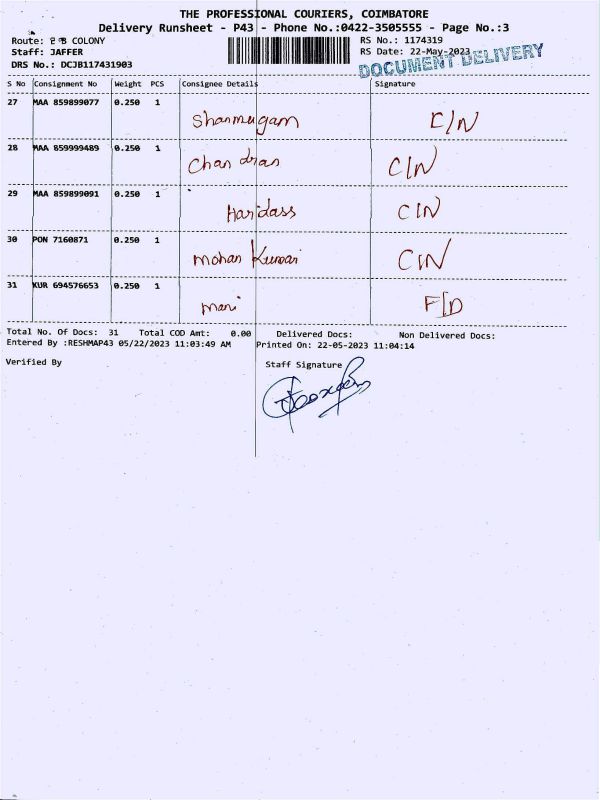 THE PROFESSIONAL COURIERS, COIMBATORE
Delivery Runsheet - P43 - Phone No.:0422-3505555 - Page No.:3
Route: P B COLONY
RS No.: 1174319
Staff: JAFFER
RS Date: 22-May-2023
DRS No.: DCJB117431903
DOCUMENT DELIVERY
S No Consignment No Weight PCS Consignee Details Signature
27 MAA 859899077 0.250 1
Shanmugam C/N
28 MAA 859999489 0.250 1
Chandran C/N
29 MAA 859899091 0.250 1
Haridass C/N
30 PON 7160871 0.250 1
Mohan Kumar C/N
31 KUR 694576653 0.250 1
Mani F/D
Total No. Of Docs: 31 Total COD Amt: 0.00 Delivered Docs: Non Delivered Docs:
Entered By :RESHMAP43 05/22/2023 11:03:49 AM Printed On: 22-05-2023 11:04:14
Verified By Staff Signature